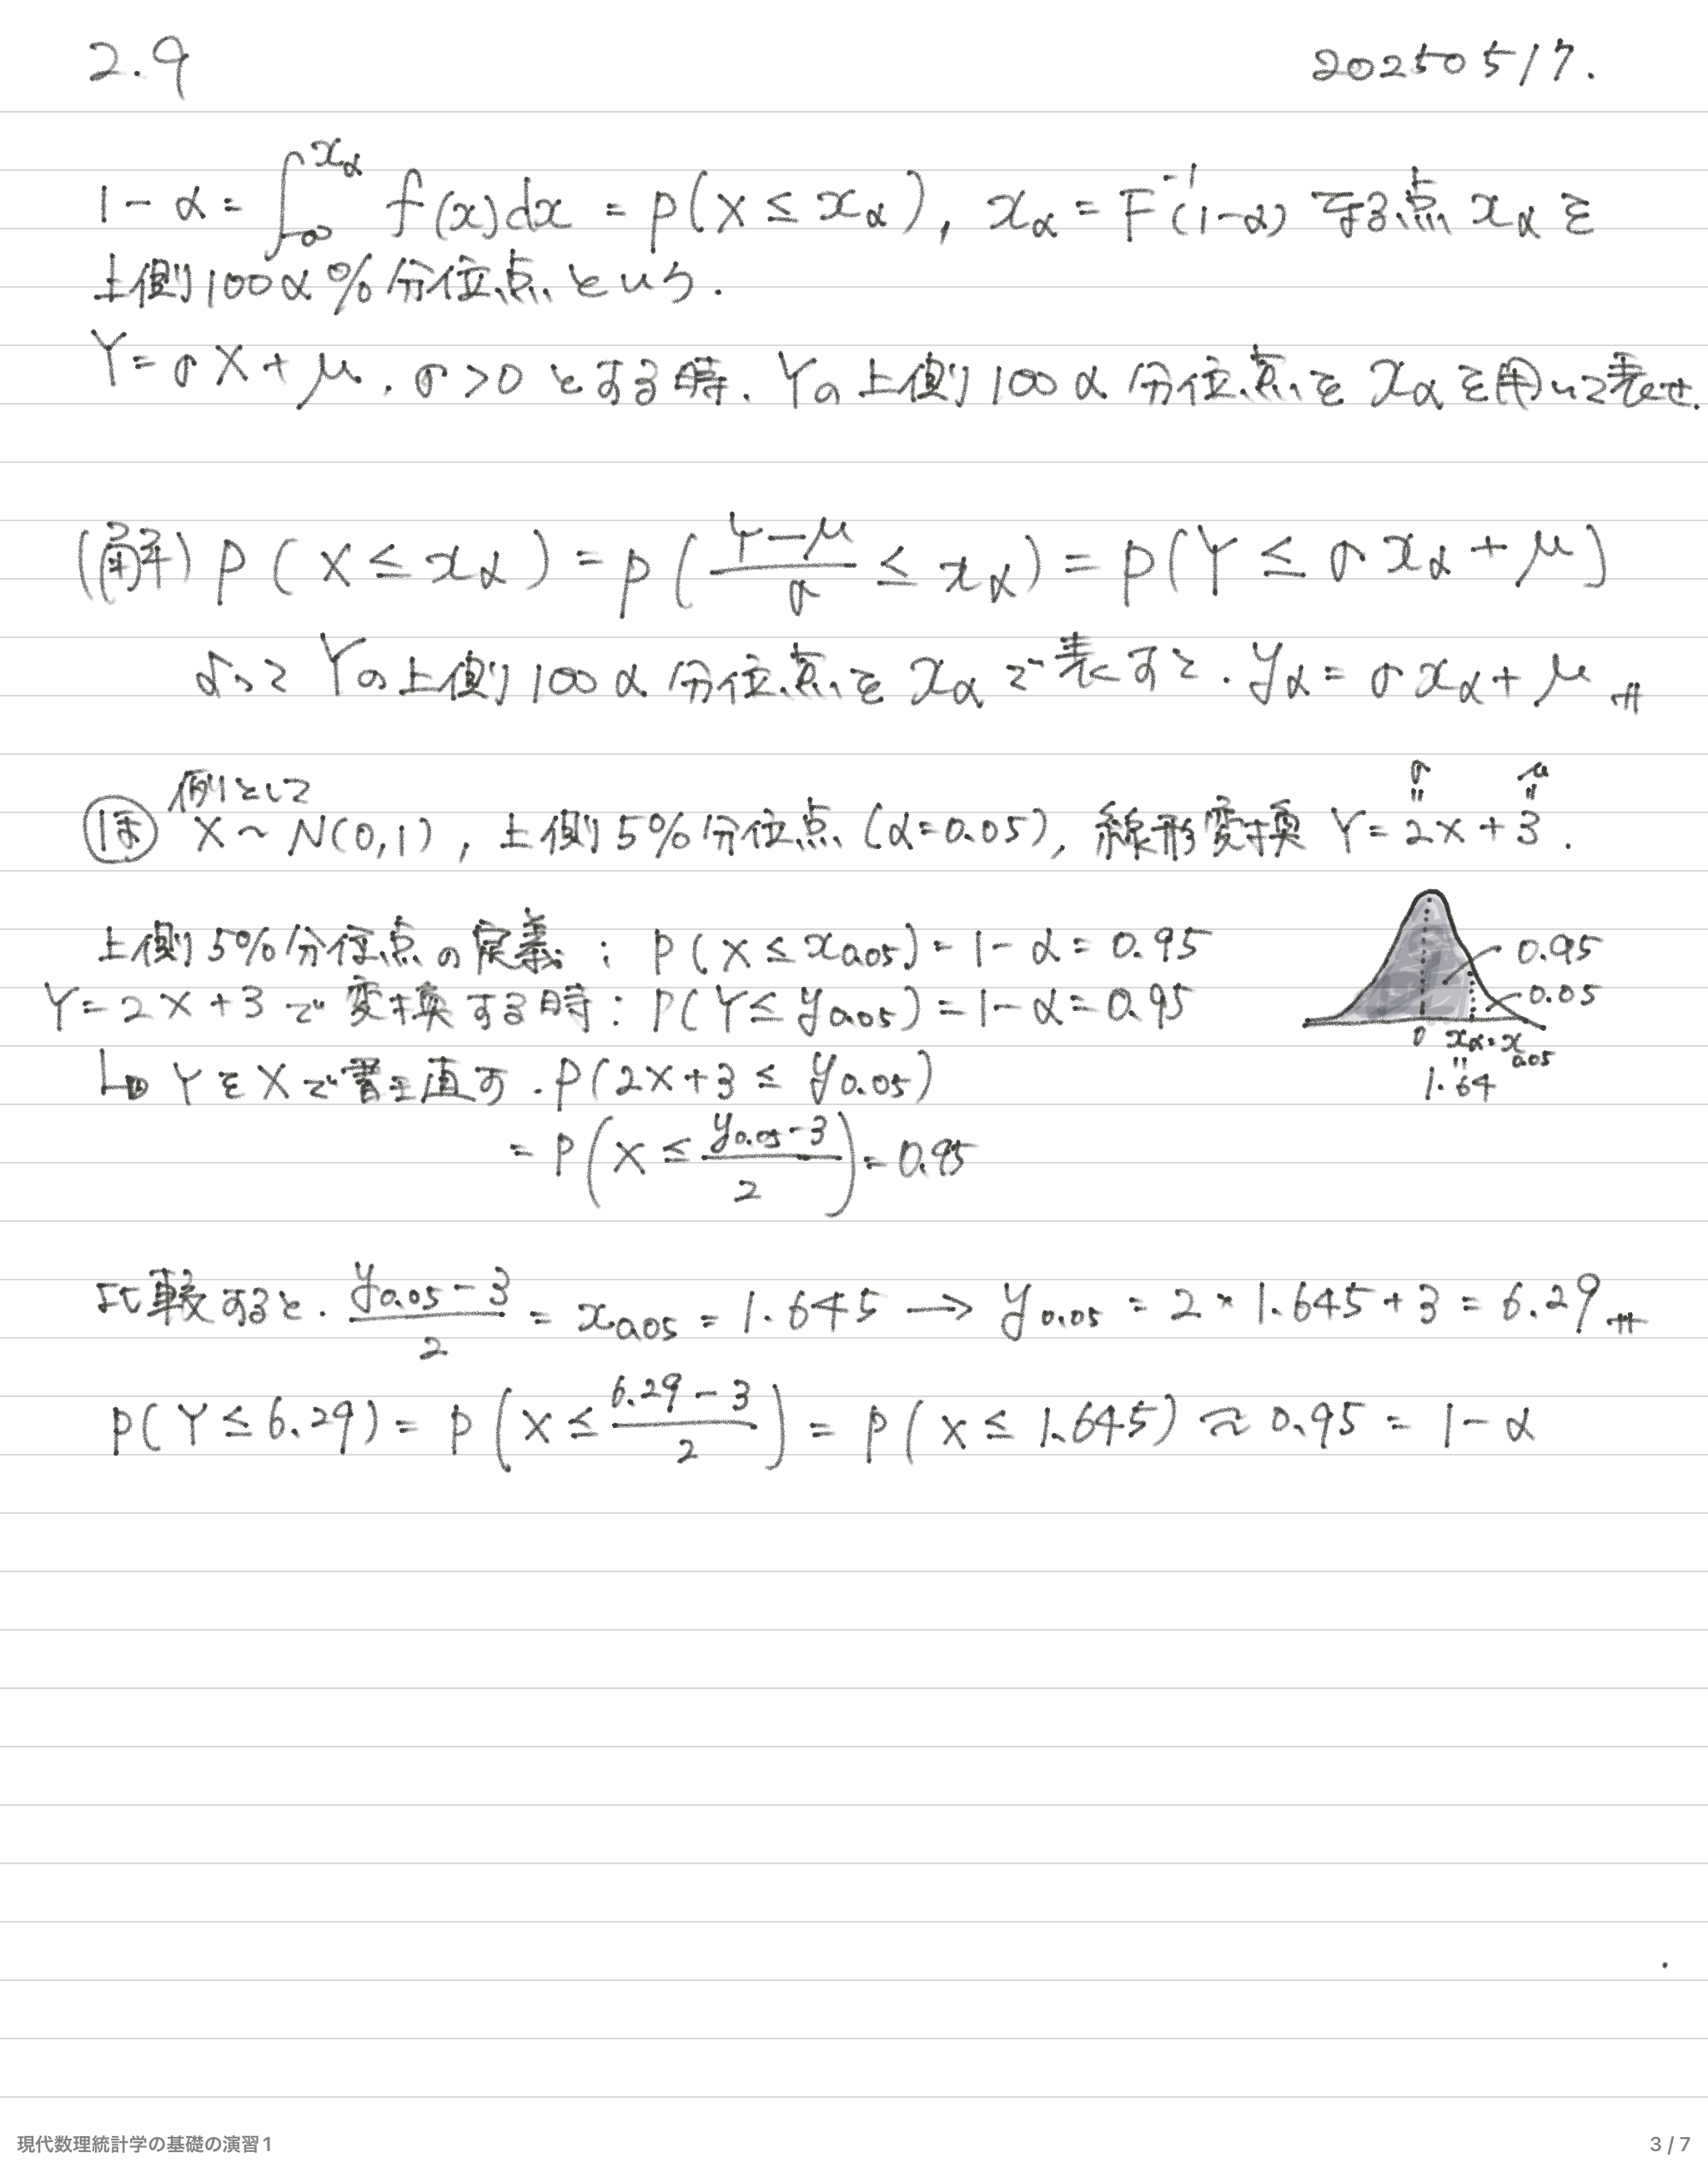 2.9
20250517.
1-α = ∫_{-∞}^{x_α} f(x)dx = P(X ≤ x_α), x_α = F^{-1}(1-α) なる点 x_α を
上側100α%分位点という.
Y = σX + μ, σ>0 とする時. Yの上側100α分位点を x_α を用いて表せ.
(解) P(X ≤ x_α) = P((Y-μ)/σ ≤ x_α) = P(Y ≤ σx_α + μ)
よって Yの上側100α分位点を x_α で表すと. y_α = σx_α + μ
例として σ = μ =
X ~ N(0,1), 上側5%分位点 (α=0.05), 線形変換 Y = 2X + 3.
上側5%分位点の定義 : P(X ≤ x_{0.05}) = 1-α = 0.95
0.95
Y = 2X + 3 で変換する時 : P(Y ≤ y_{0.05}) = 1-α = 0.95
0.05
0 x_α = x_{0.05}
YをXで書き直す. P(2X+3 ≤ y_{0.05})
= 1.64
= P(X ≤ (y_{0.05}-3)/2) = 0.95
比較すると. (y_{0.05}-3)/2 = x_{0.05} = 1.645 → y_{0.05} = 2 * 1.645 + 3 = 6.29
P(Y ≤ 6.29) = P(X ≤ (6.29-3)/2) = P(X ≤ 1.645) ≈ 0.95 = 1-α
現代数理統計学の基礎の演習1
3 / 7